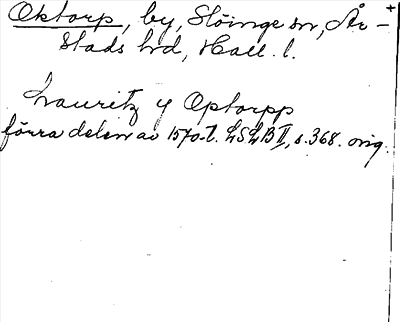 Oktorp, by, Slöinge sn, År-
stads hd, Hall. l.
Lauritz y Optorpp
förra delen av 1570-t. LSLB II, s. 368. orig.